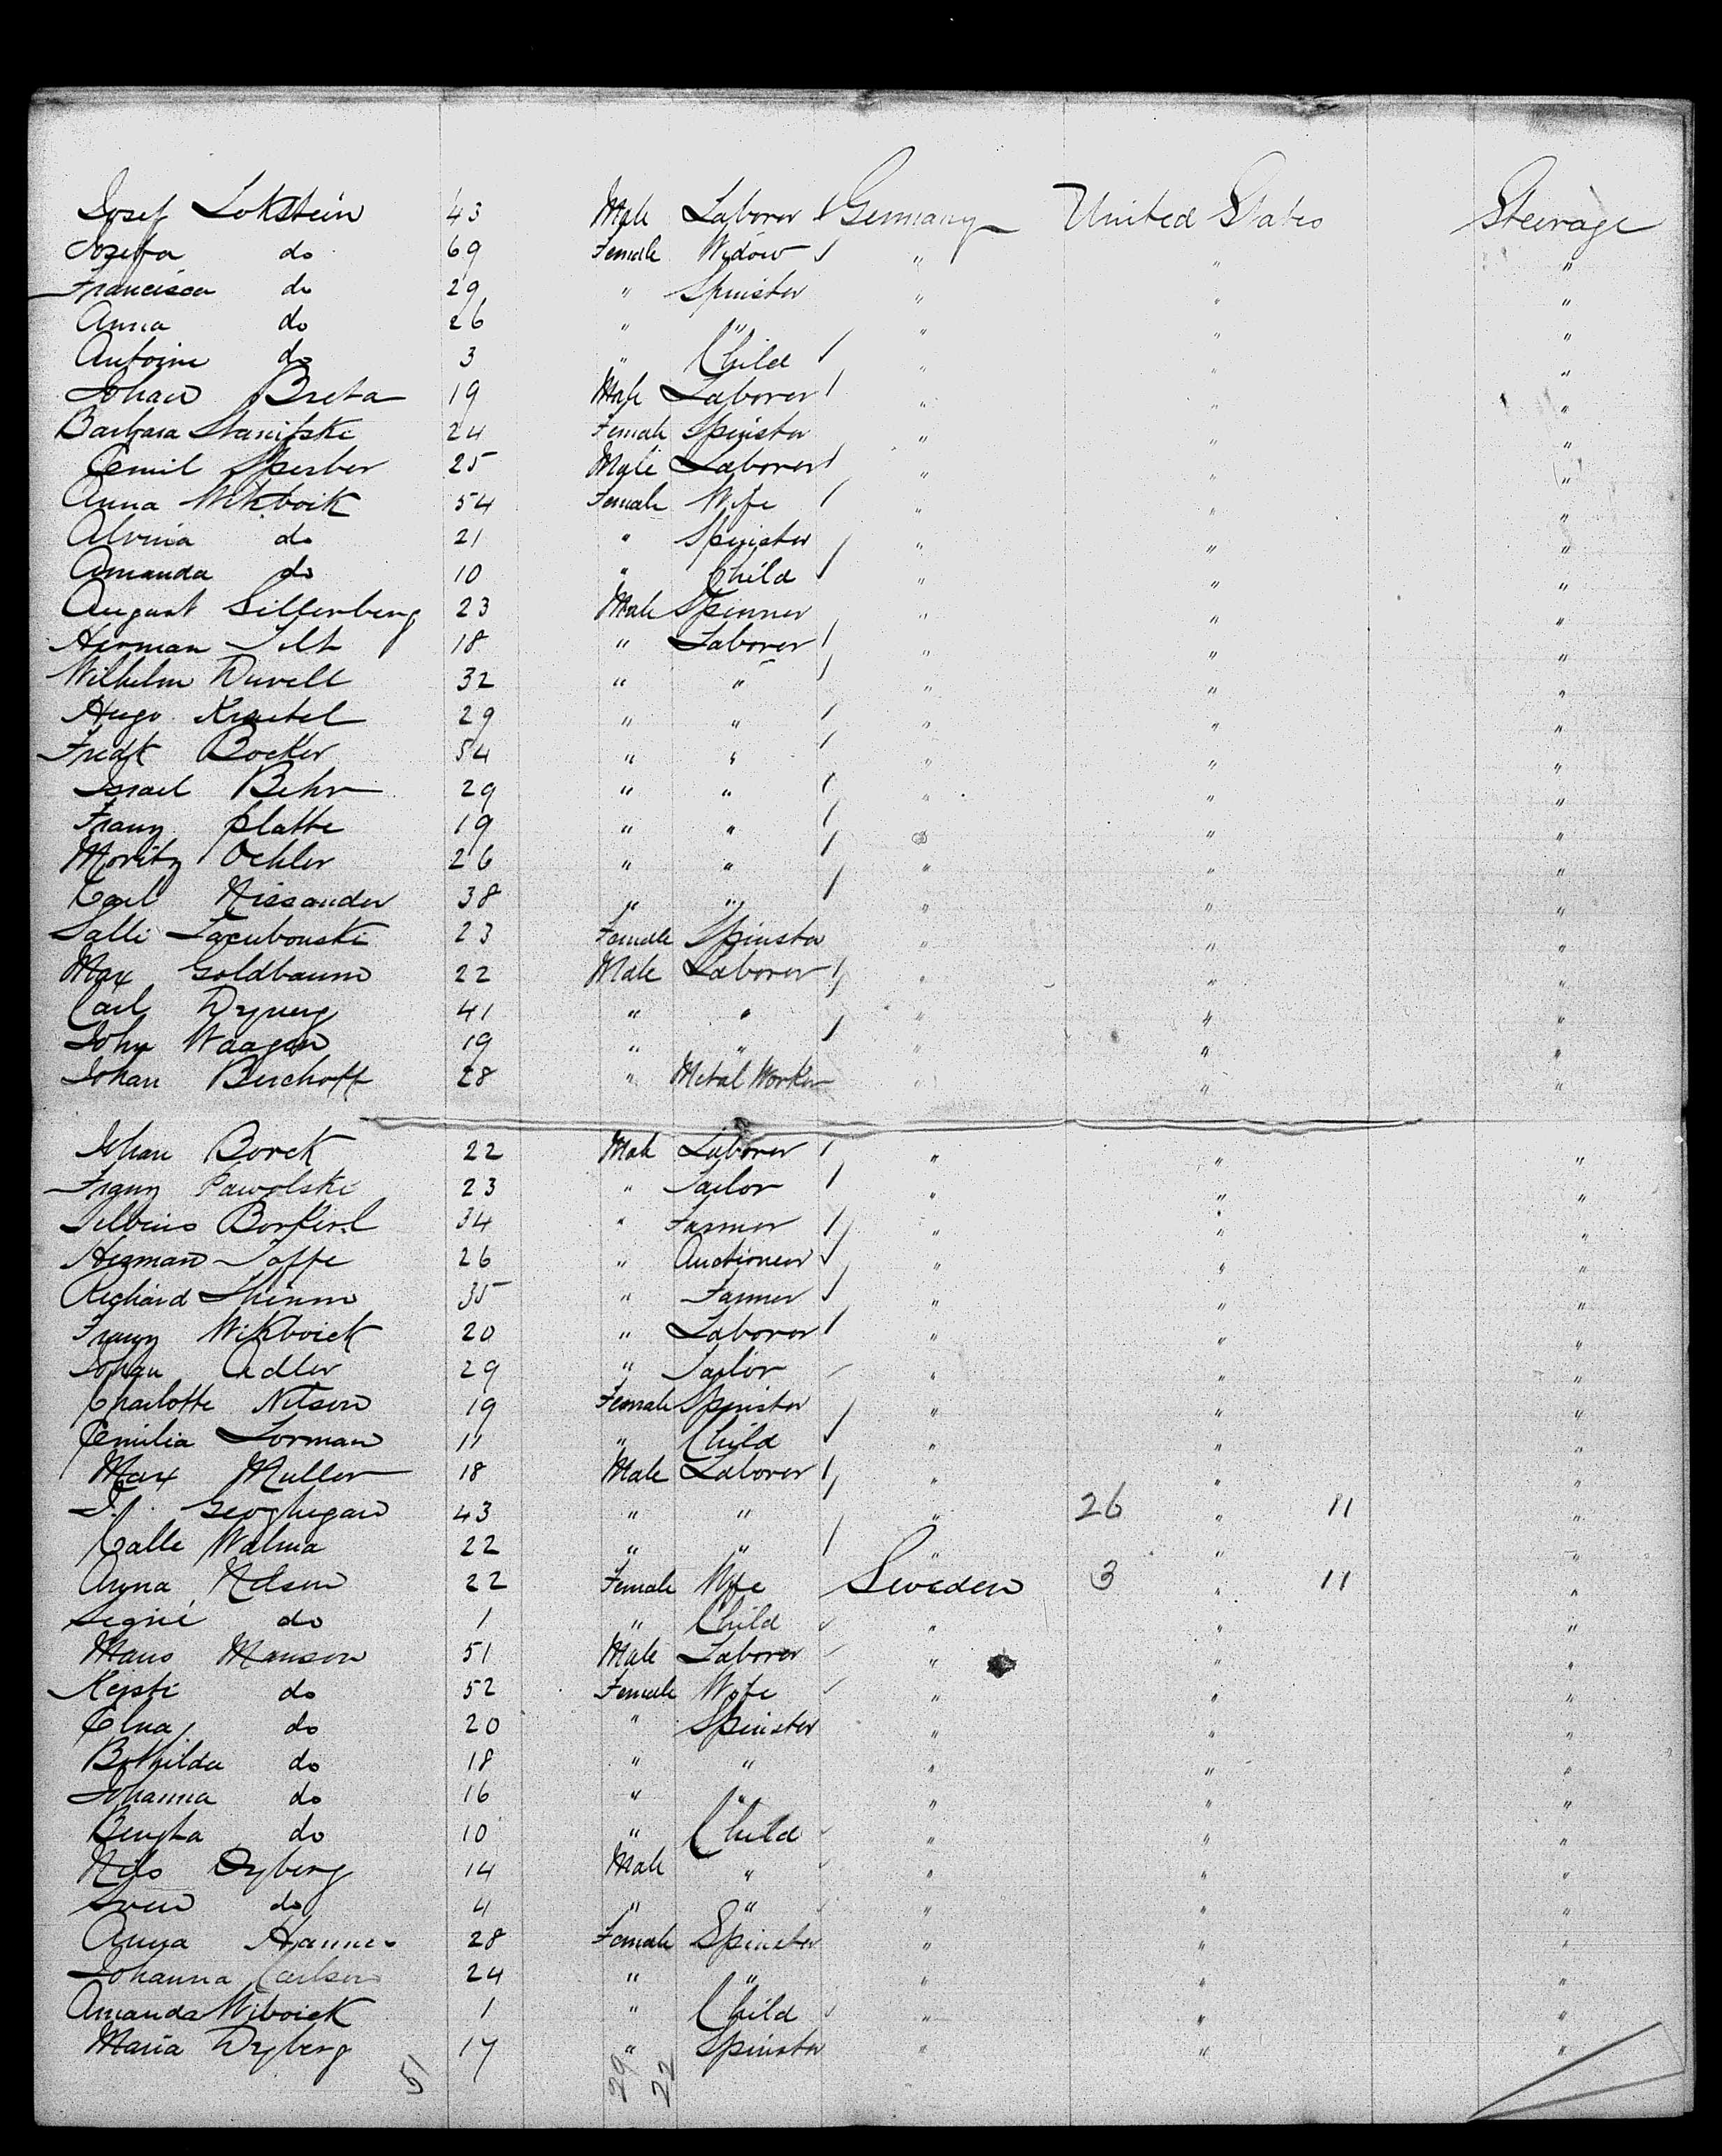 Josef Lokstein 43 Male Laborer Germany United States Steerage
Josefa do 69 Female Widow " " "
Francisca do 29 " Spinster " " "
Anna do 26 " " " " "
Antoine do 3 " Child " " "
Johan Breta 19 Male Laborer " " "
Barbara Stanifski 24 Female Spinster " " "
Emil Sperber 25 Male Laborer " " "
Anna Wikboik 54 Female Wife " " "
Alvina do 21 " Spinster " " "
Amanda do 10 " Child " " "
August Sillerberg 23 Male Spinner " " "
Herman 18 " Laborer " " "
Wilhelm Duvell 32 " " " " "
Hugo 29 " " " " "
Fredk Bocker 54 " " " " "
Israel Behr 29 " " " " "
Franz Platte 19 " " " " "
Moritz Oehler 26 " " " " "
Carl Nissander 38 " " " " "
Salli Jacubouski 23 Female Spinster " " "
Max Goldbaum 22 Male Laborer " " "
Carl 41 " " " " "
John Waagen 19 " " " " "
Johan Berchoff 28 " Metal Worker " " "
Johan Borck 22 Male Laborer " " "
Franz Pawolski 23 " Tailor " " "
34 " Farmer " " "
Herman Joffe 26 " Auctioneer " " "
Richard 35 " Farmer " " "
Franz Wikboick 20 " Laborer " " "
Johan Adler 29 " Tailor " " "
Charlotte Nilson 19 Female Spinster " " "
Emilia Lorman 11 " Child " " "
Max Muller 18 Male Laborer " " "
Geoghegan 43 " " " 26 " 11 "
Calle Walma 22 " " " " "
Anna Nelson 22 Female Wife Sweden 3 " 11 "
Segrie do 1 " Child " " "
Mans Manson 51 Male Laborer " " "
Kersti do 52 Female Wife " " "
Elna do 20 " Spinster " " "
Bothilda do 18 " " " " "
Johanna do 16 " " " " "
Bengta do 10 " Child " " "
Nils Dyberg 14 Male " " " "
Sven do 4 " " " " "
Anna 28 Female Spinster " " "
Johanna Carlson 24 " " " " "
Amanda Wiboick 1 " Child " " "
Maria Dyberg 17 " Spinster " " "
51 29 22